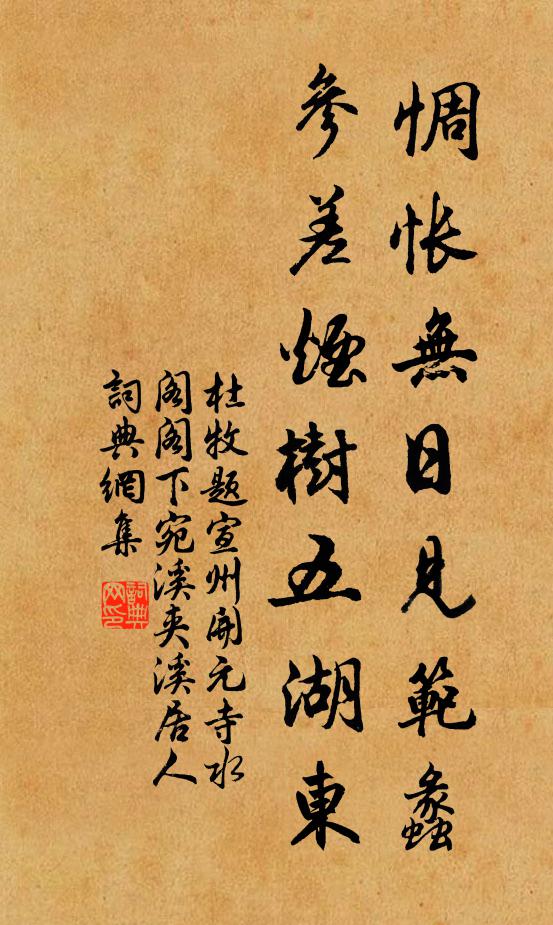 惆悵無日見範蠡
參差煙樹五湖東
杜牧題宣州開元寺水
閣閣下宛溪夾溪居人
詞典網集
詞典網印